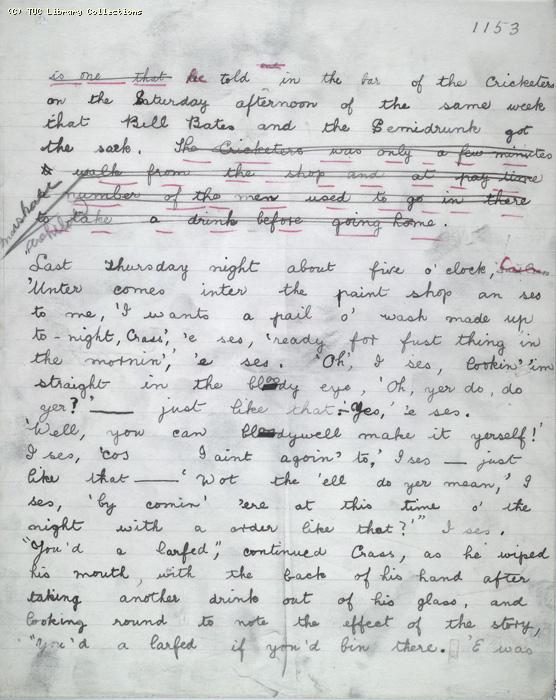 (C) TUC Library Collections
1153
is one that he told out in the bar of the Cricketers
on the Saturday afternoon of the same week
that Bill Bates and the Semidrunk got
the sack. The Cricketers was only a few minutes
walk from the shop and at pay time
number of the men used to go in there
to take a drink before going home.
Last Thursday night about five o'clock,
'Unter comes inter the paint shop an ses
to me, 'I wants a pail o' wash made up
to-night, Crass', 'e ses, 'ready for fust thing in
the mornin',' 'e ses. 'Oh', I ses, lookin' 'im
straight in the bloody eye, 'Oh, yer do, do
yer?' — just like that - 'Yes,' 'e ses.
'Well, you can bloodywell make it yerself!'
I ses, 'cos I aint agoin' to,' I ses — just
like that — 'Wot the 'ell do yer mean,' I
ses, 'by comin' 'ere at this time o' the
night with a order like that?'" I ses.
"You'd a larfed", continued Crass, as he wiped
his mouth with the back of his hand after
taking another drink out of his glass, and
looking round to note the effect of the story,
"you'd a larfed if you'd bin there. 'E was